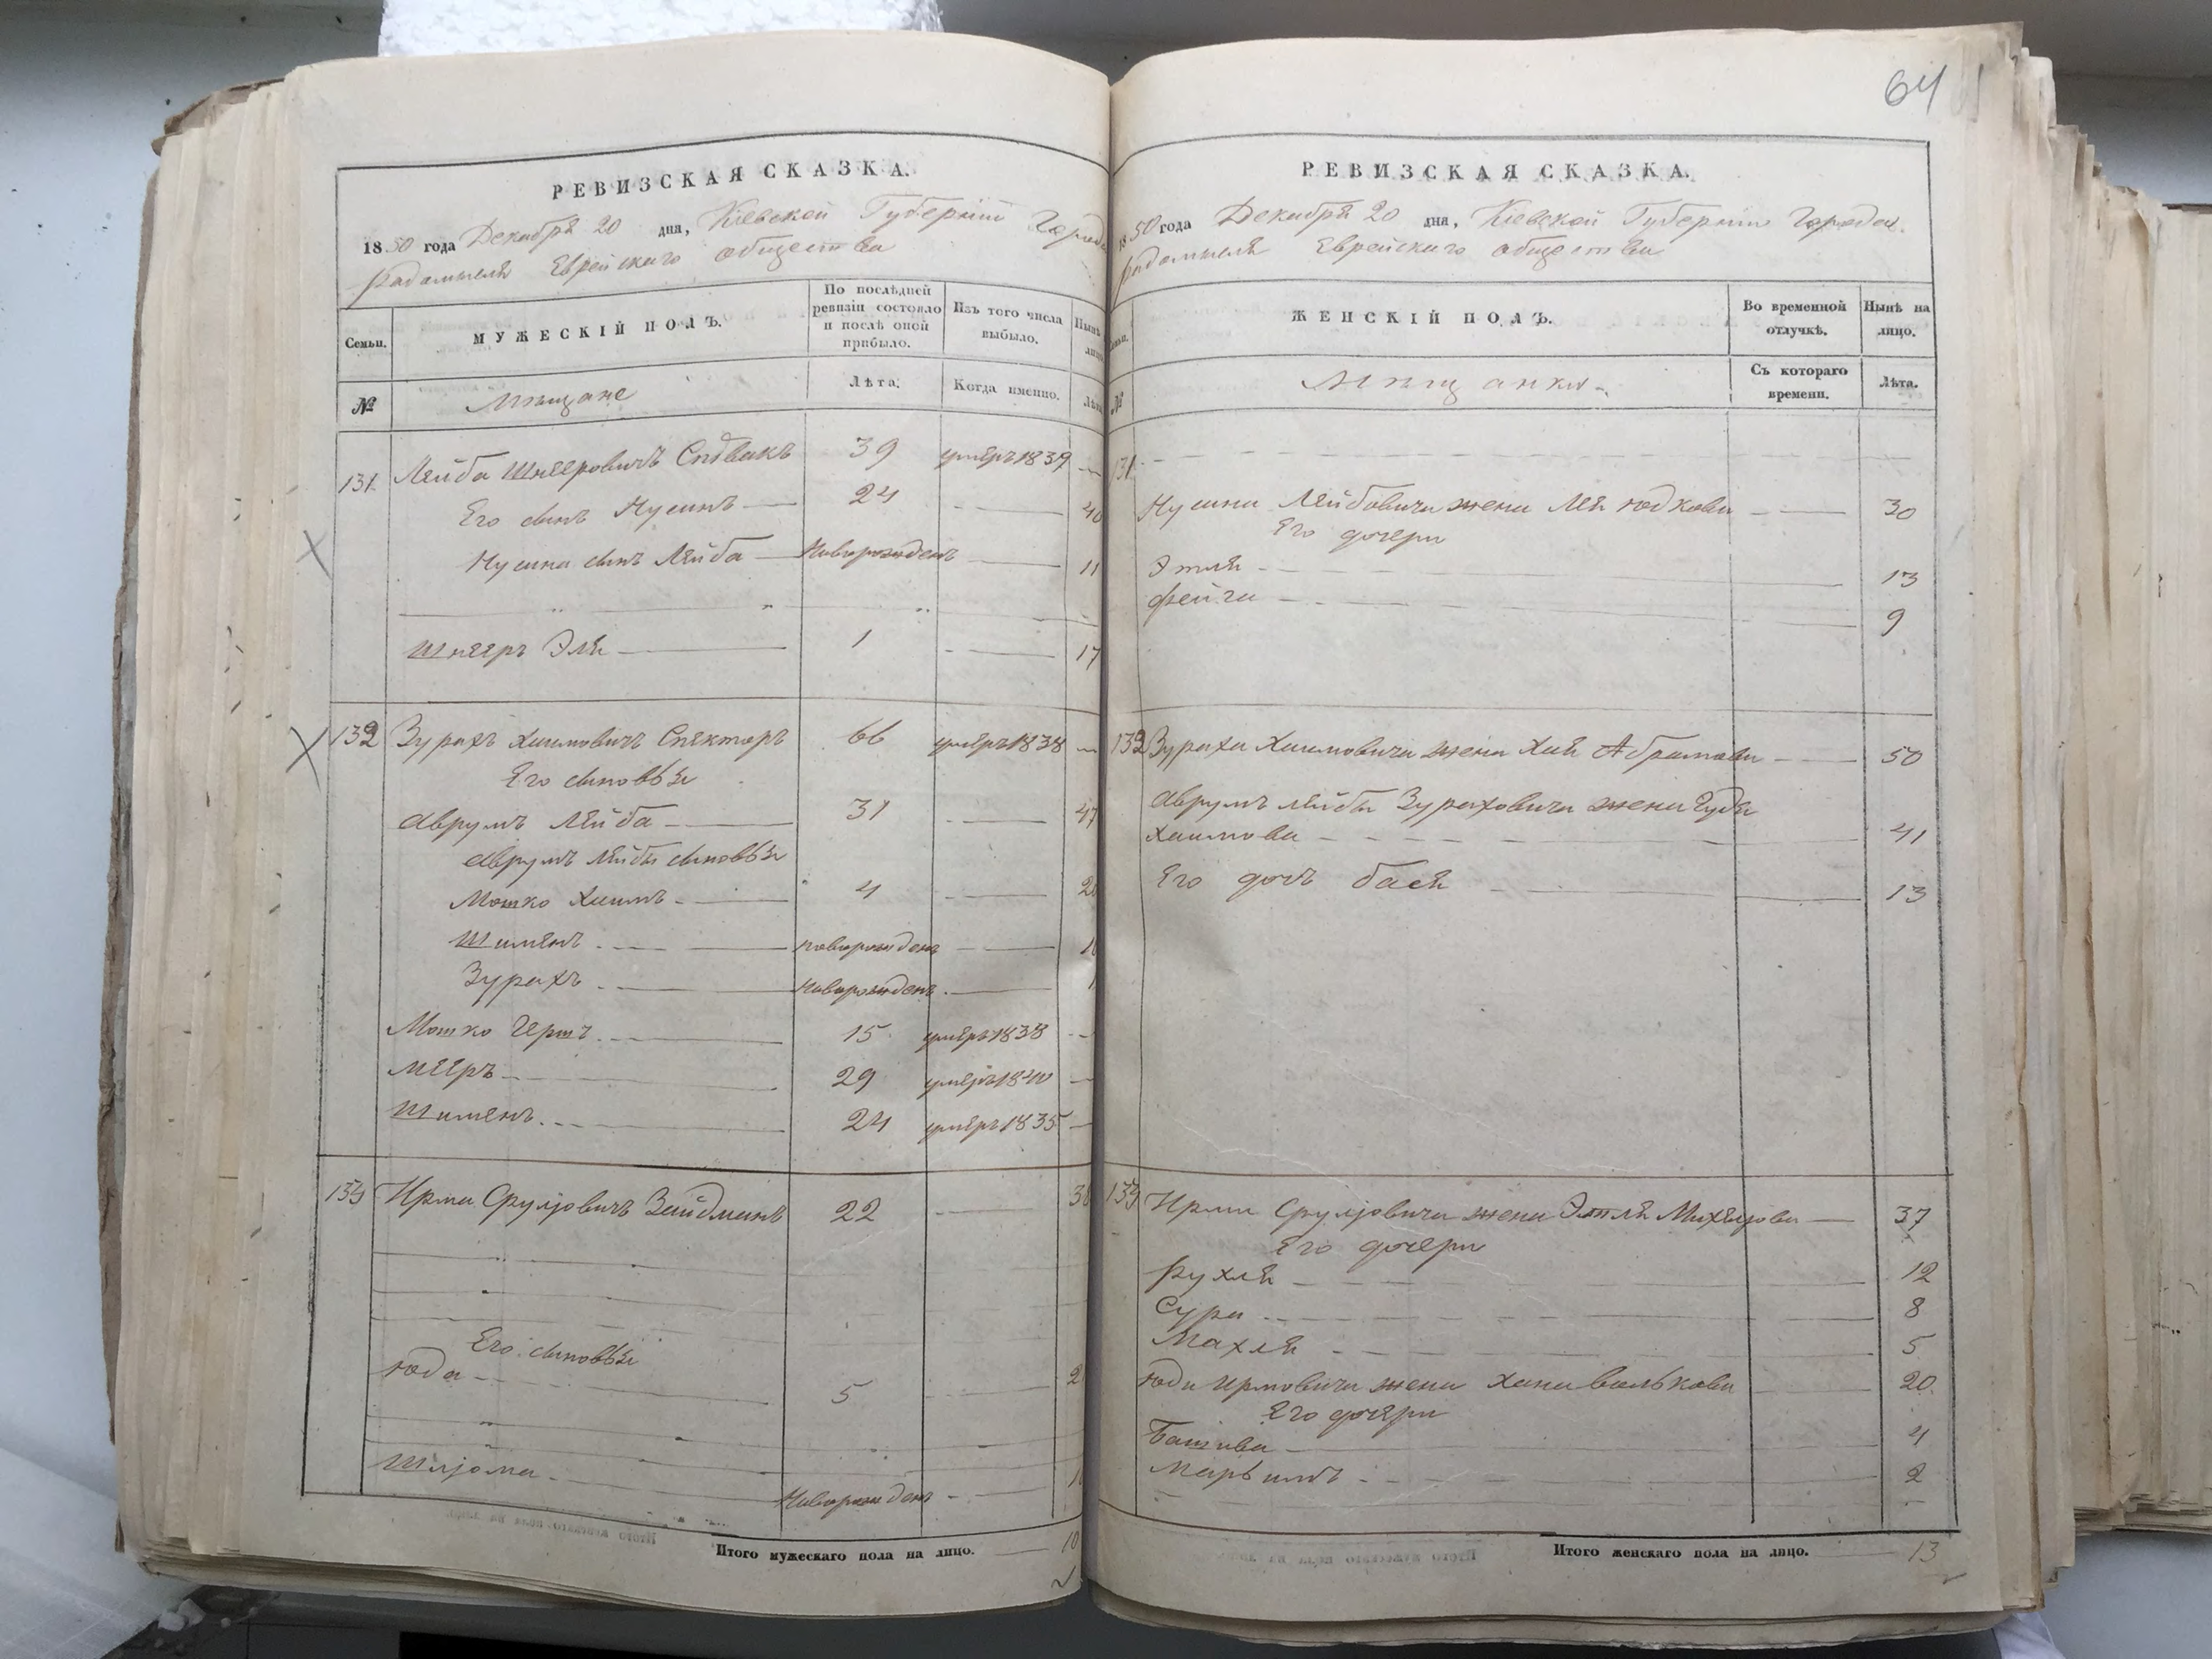 64
РЕВИЗСКАЯ СКАЗКА.
1850 года Декабря 20 дня, Кіевской Губерніи Города
Радомысля Еврейскаго общества
Семьи.
МУЖЕСКІЙ ПОЛЪ.
По послѣдней ревизіи состояло и послѣ оной прибыло.
Изъ того числа выбыло.
Нынѣ
№
Мѣщане
Лѣта.
Когда именно.
131. Лейба Шнееровичъ Спѣвакъ 39 умеръ 1839 —
Его сынъ Нусинъ — 24 — 40
Нусина сынъ Лейба — Новорожденъ — 11
Шнееръ Эля — 1 — 17
132 Зурахъ Хаимовичъ Спекторъ 66 умеръ 1838 —
Его сыновья
Аврумъ Лейба — 31 — 47
Аврумъ Лейбы сыновья
Мошко Хаимъ — 4 —
Шименъ — новорожденъ —
Зурахъ — Новорожденъ —
Мошко Гершъ — 15 умеръ 1838 —
Мееръ — 29 умеръ 1840 —
Шименъ — 24 умеръ 1835 —
133 Ирма Срулiовичъ Зайдманъ 22 —
Его сыновья
Юда — 5 —
Шлiома — Новорожденъ —
Итого мужескаго пола на лицо. — 10
РЕВИЗСКАЯ СКАЗКА.
1850 года Декабря 20 дня, Кіевской Губерніи Города
Радомысля Еврейскаго общества
ЖЕНСКІЙ ПОЛЪ.
Во временной отлучкѣ.
Нынѣ на лицо.
№
Мѣщанки
Съ котораго времени.
Лѣта.
131
Нусина Лейбовича жена Лея Юдкова — 30
Его дочери
Этля — 13
Фейга — 9
132 Зураха Хаимовича жена Хая Абрамова — 50
Аврумъ Лейбы Зураховича жена Гудя
Хаимова — 41
Его дочь Бася — 13
133 Ирмы Срулiовича жена Этля Михелiова — 37
Его дочери
Рухля — 12
Сура — 8
Махля — 5
Юды Ирмовича жена Хана Волькова 20
Его дочери
Башива — 4
Марьимъ — 2
Итого женскаго пола на лицо. — 13